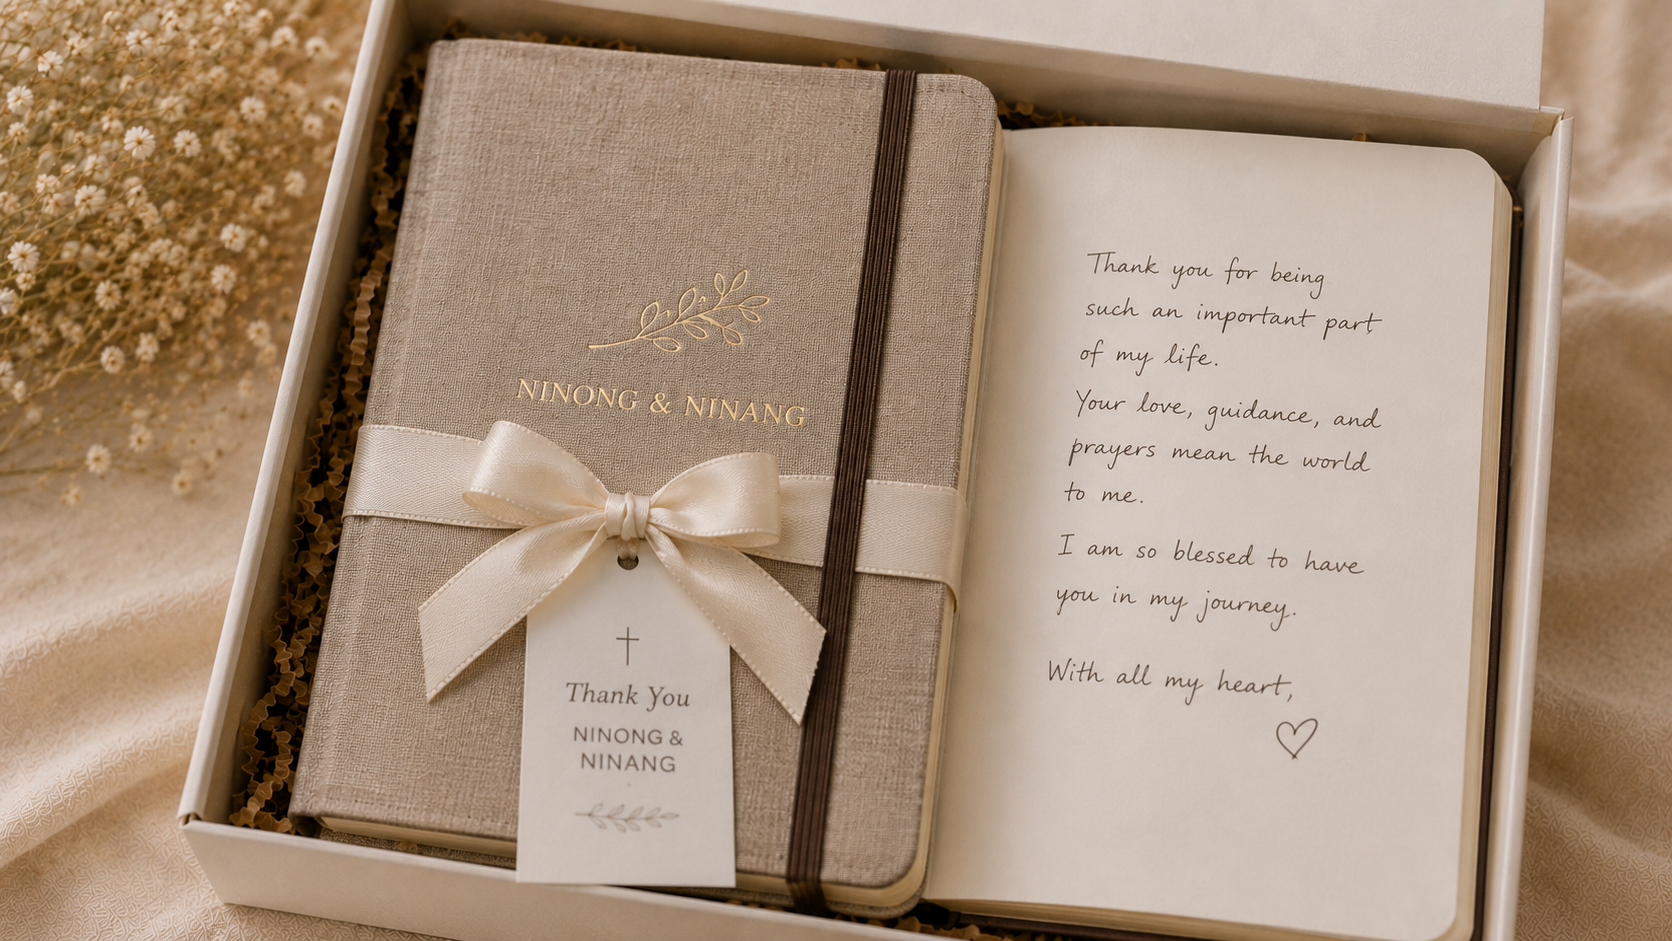 NINONG & NINANG
Thank You
NINONG &
NINANG
Thank you for being
such an important part
of my life.
Your love, guidance, and
prayers mean the world
to me.
I am so blessed to have
you in my journey.
With all my heart,